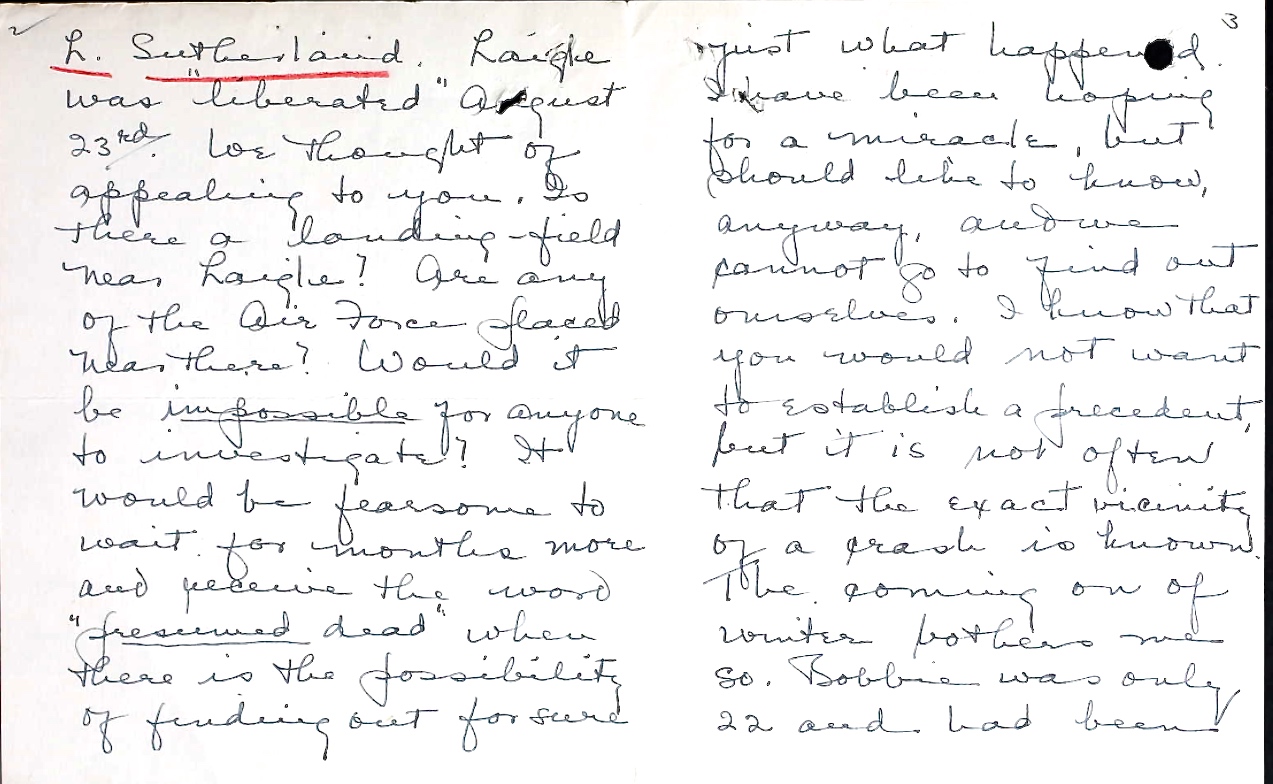 2
L. Sutherland. Laigle
was "liberated" August
23rd. We thought of
appealing to you. Is
there a landing-field
near Laigle? Are any
of the Air Force placed
near there? Would it
be impossible for anyone
to investigate? It
would be fearsome to
wait for months more
and receive the word
"presumed dead" when
there is the possibility
of finding out for sure
3
just what happened.
I have been hoping
for a miracle, but
should like to know,
anyway, and we
cannot go to find out
ourselves. I know that
you would not want
to establish a precedent,
but it is not often
that the exact vicinity
of a crash is known.
The coming on of
winter bothers me
so. Bobbie was only
22 and had been